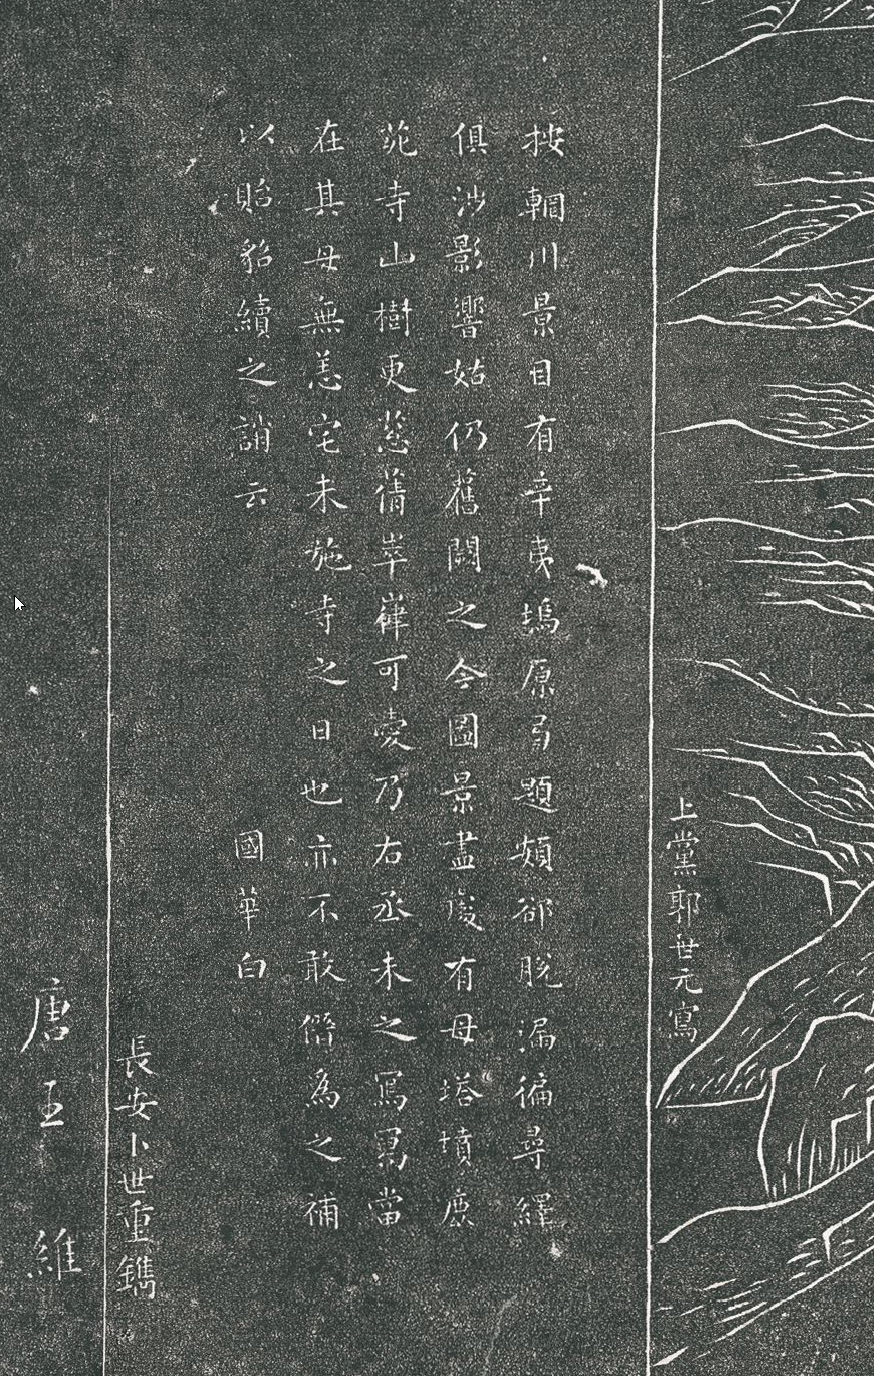 上黨郭世元寫
按輞川景目有辛夷塢原另題頗卻脫漏徧尋繹
俱涉影響姑仍舊闕之今圖景盡處有母塔墳鹿
苑寺山樹更蔥蒨崒嵂可愛乃右丞未之寫寫當
在其母無恙宅未施寺之日也亦不敢僭為之補
以貽貂續之誚云
國華白
長安卜世重鐫
唐王維